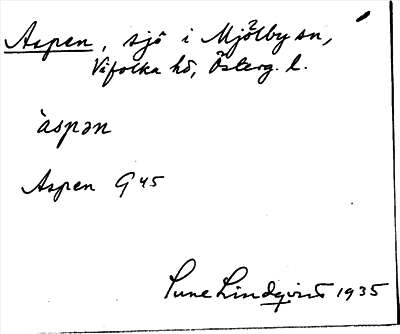 Aspen, sjö i Mjölby sn,
Vifolka hd, Österg. l.
àspən
Aspen G45
Sune Lindqvist 1935